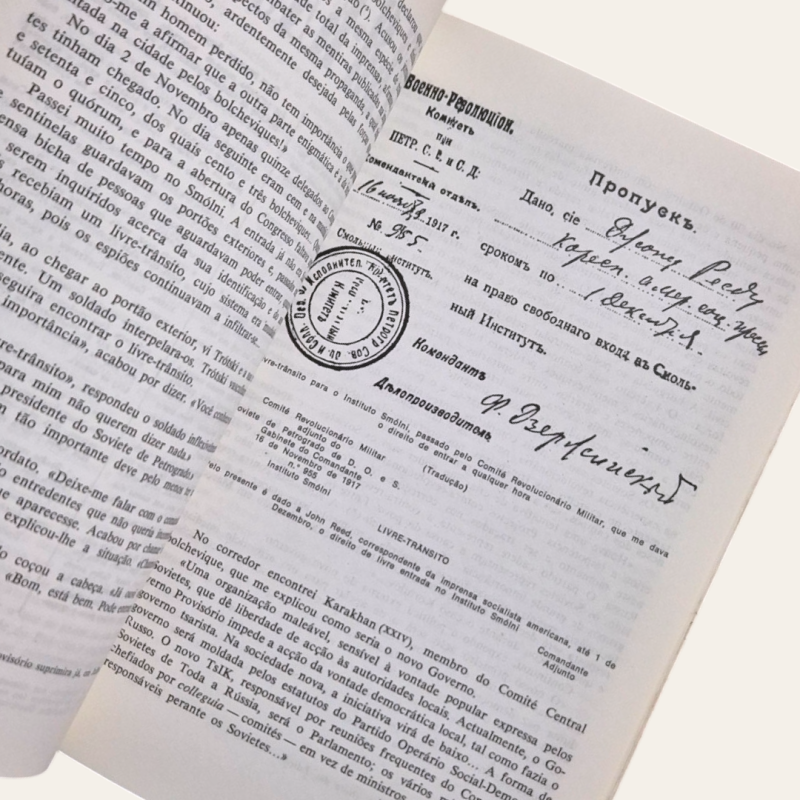 mesma espécie
pectos da mesma propaganda,
bater as mentiras publicadas
ardentemente desejada pelas
tinuou:
um homem perdido, não tem importância o
me a afirmar que a outra parte enigmática é
ntada na cidade pelos bolcheviques!»
No dia 2 de Novembro apenas quinze delegados ao
tes tinham chegado. No dia seguinte eram cem e
e setenta e cinco, dos quais cento e três bolcheviques.
tuíam o quórum, e para a abertura do Congresso
Passei muito tempo no Smólni. A entrada já não
e sentinelas guardavam os portões exteriores e,
ensa bicha de pessoas que aguardavam poder entrar,
serem inquiridos acerca da sua identificação e
recebiam um livre-trânsito, cujo sistema era
horas, pois os espiões continuavam a infiltrar-se
dia, ao chegar ao portão exterior, vi Trótski e
ente. Um soldado interpelara-os. Trótski
seguira encontrar o livre-trânsito.
importância», acabou por dizer. «Você
re-trânsito», respondeu o soldado
para mim não querem dizer nada.»
presidente do Soviete de Petrogrado
tão importante deve pelo menos
ordato. «Deixe-me falar com o
entredentes que não queria
que aparecesse. Acabou por
explicou-lhe a situação.
coçou a cabeça. «Já
«Bom, está bem. Pode
visório suprimira já
Военно-Революціон.
Комитетъ
при
ПЕТР. С. Р. и С. Д.
Комендантскій отдѣлъ.
16 ноября 1917 г.
№ 955
Смольный Институтъ.
Пропускъ.
Дано, сіе Джону Риду
корресп. амер. соц. прессы
срокомъ по 1 декабря.
на право свободнаго входа въ Смоль-
ный Институтъ.
Комендантъ
Дѣлопроизводитель
Ф. Дзержинскій
livre-trânsito para o Instituto Smólni, passado pelo Comité Revolucionário Militar, que me dava
o direito de entrar a qualquer hora
(Tradução)
Comité Revolucionário Militar
adjunto do
oviete de Petrogrado de D. O. e S.
Gabinete do Comandante
16 de Novembro de 1917
n.º 955
Instituto Smólni
LIVRE-TRÂNSITO
elo presente é dado a John Reed, correspondente da imprensa socialista americana, até 1 de
Dezembro, o direito de livre entrada no Instituto Smólni
Comandante
Adjunto
No corredor encontrei Karakhan (XXIV), membro do Comité Central
bolchevique, que me explicou como seria o novo Governo.
«Uma organização maleável, sensível à vontade popular expressa pelos
Sovietes, que dê liberdade de acção às autoridades locais. Actualmente, o Go-
verno Provisório impede a acção da vontade democrática local, tal como fazia o
governo tsarista. Na sociedade nova, a iniciativa virá de baixo... A forma de
governo será moldada pelos estatutos do Partido Operário Social-Demo
Russo. O novo TsIK, responsável por reuniões frequentes do
Sovietes de Toda a Rússia, será o Parlamento; os vários
chefiados por colleguia — comités — em vez de ministros
responsáveis perante os Sovietes...»